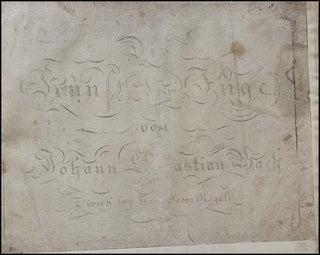 Die
Kunst der Fuge
von
Johann Sebastian Bach
Zürich bey Hans Georg Nägeli